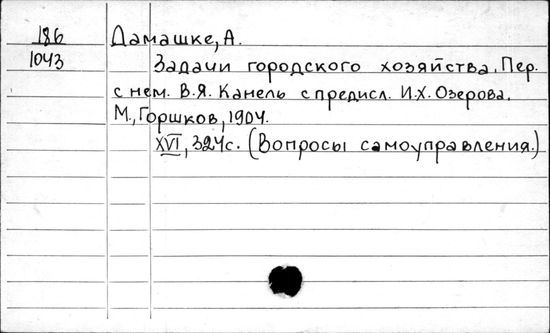 186 Дамашке, А.
1043 Задачи городского хозяйства. Пер.
с нем. В.Я. Канель с предисл. И.Х. Озерова.
М., Горшков, 1904.
XVI, 324с. (Вопросы самоуправления.)